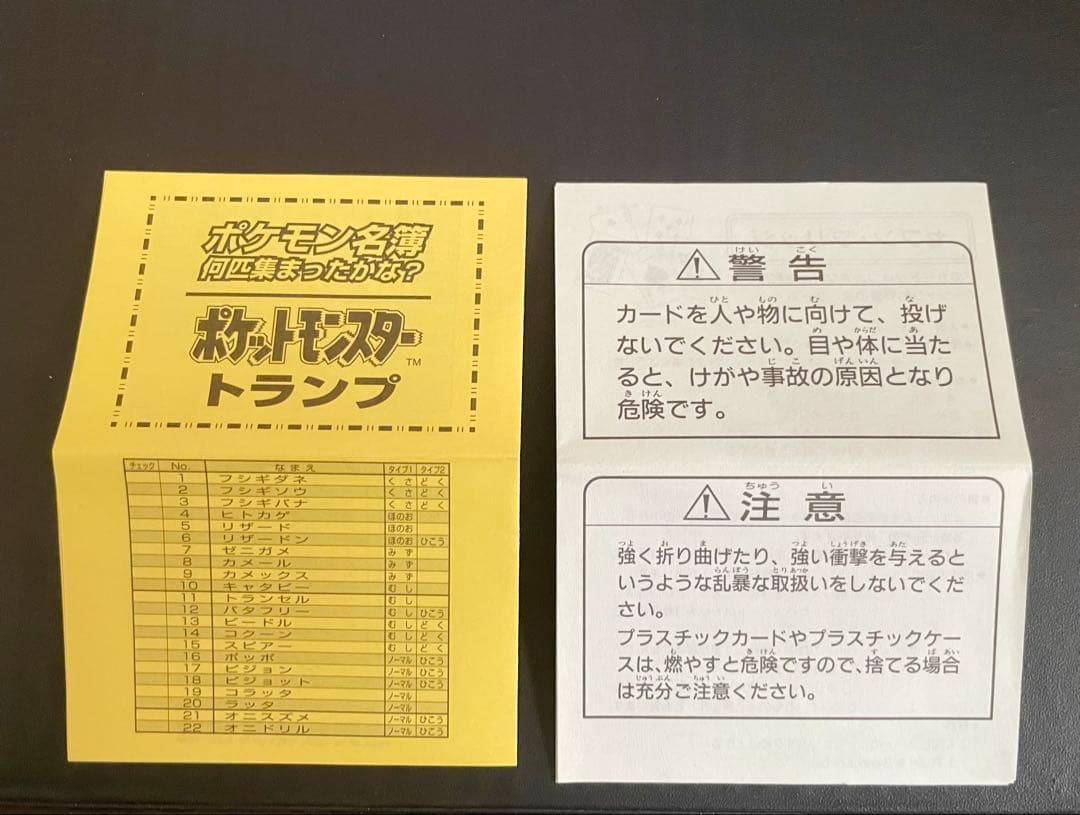 ポケモン名簿
何匹集まったかな?
ポケットモンスター™
トランプ
チェック No. なまえ タイプ1 タイプ2
1 フシギダネ くさ どく
2 フシギソウ くさ どく
3 フシギバナ くさ どく
4 ヒトカゲ ほのお
5 リザード ほのお
6 リザードン ほのお ひこう
7 ゼニガメ みず
8 カメール みず
9 カメックス みず
10 キャタピー むし
11 トランセル むし
12 バタフリー むし ひこう
13 ビードル むし どく
14 コクーン むし どく
15 スピアー むし どく
16 ポッポ ノーマル ひこう
17 ピジョン ノーマル ひこう
18 ピジョット ノーマル ひこう
19 コラッタ ノーマル
20 ラッタ ノーマル
21 オニスズメ ノーマル ひこう
22 オニドリル ノーマル ひこう
警告
カードを人や物に向けて、投げ
ないでください。目や体に当た
ると、けがや事故の原因となり
危険です。
注意
強く折り曲げたり、強い衝撃を与えると
いうような乱暴な取扱いをしないでくだ
さい。
プラスチックカードやプラスチックケー
スは、燃やすと危険ですので、捨てる場合
は充分ご注意ください。